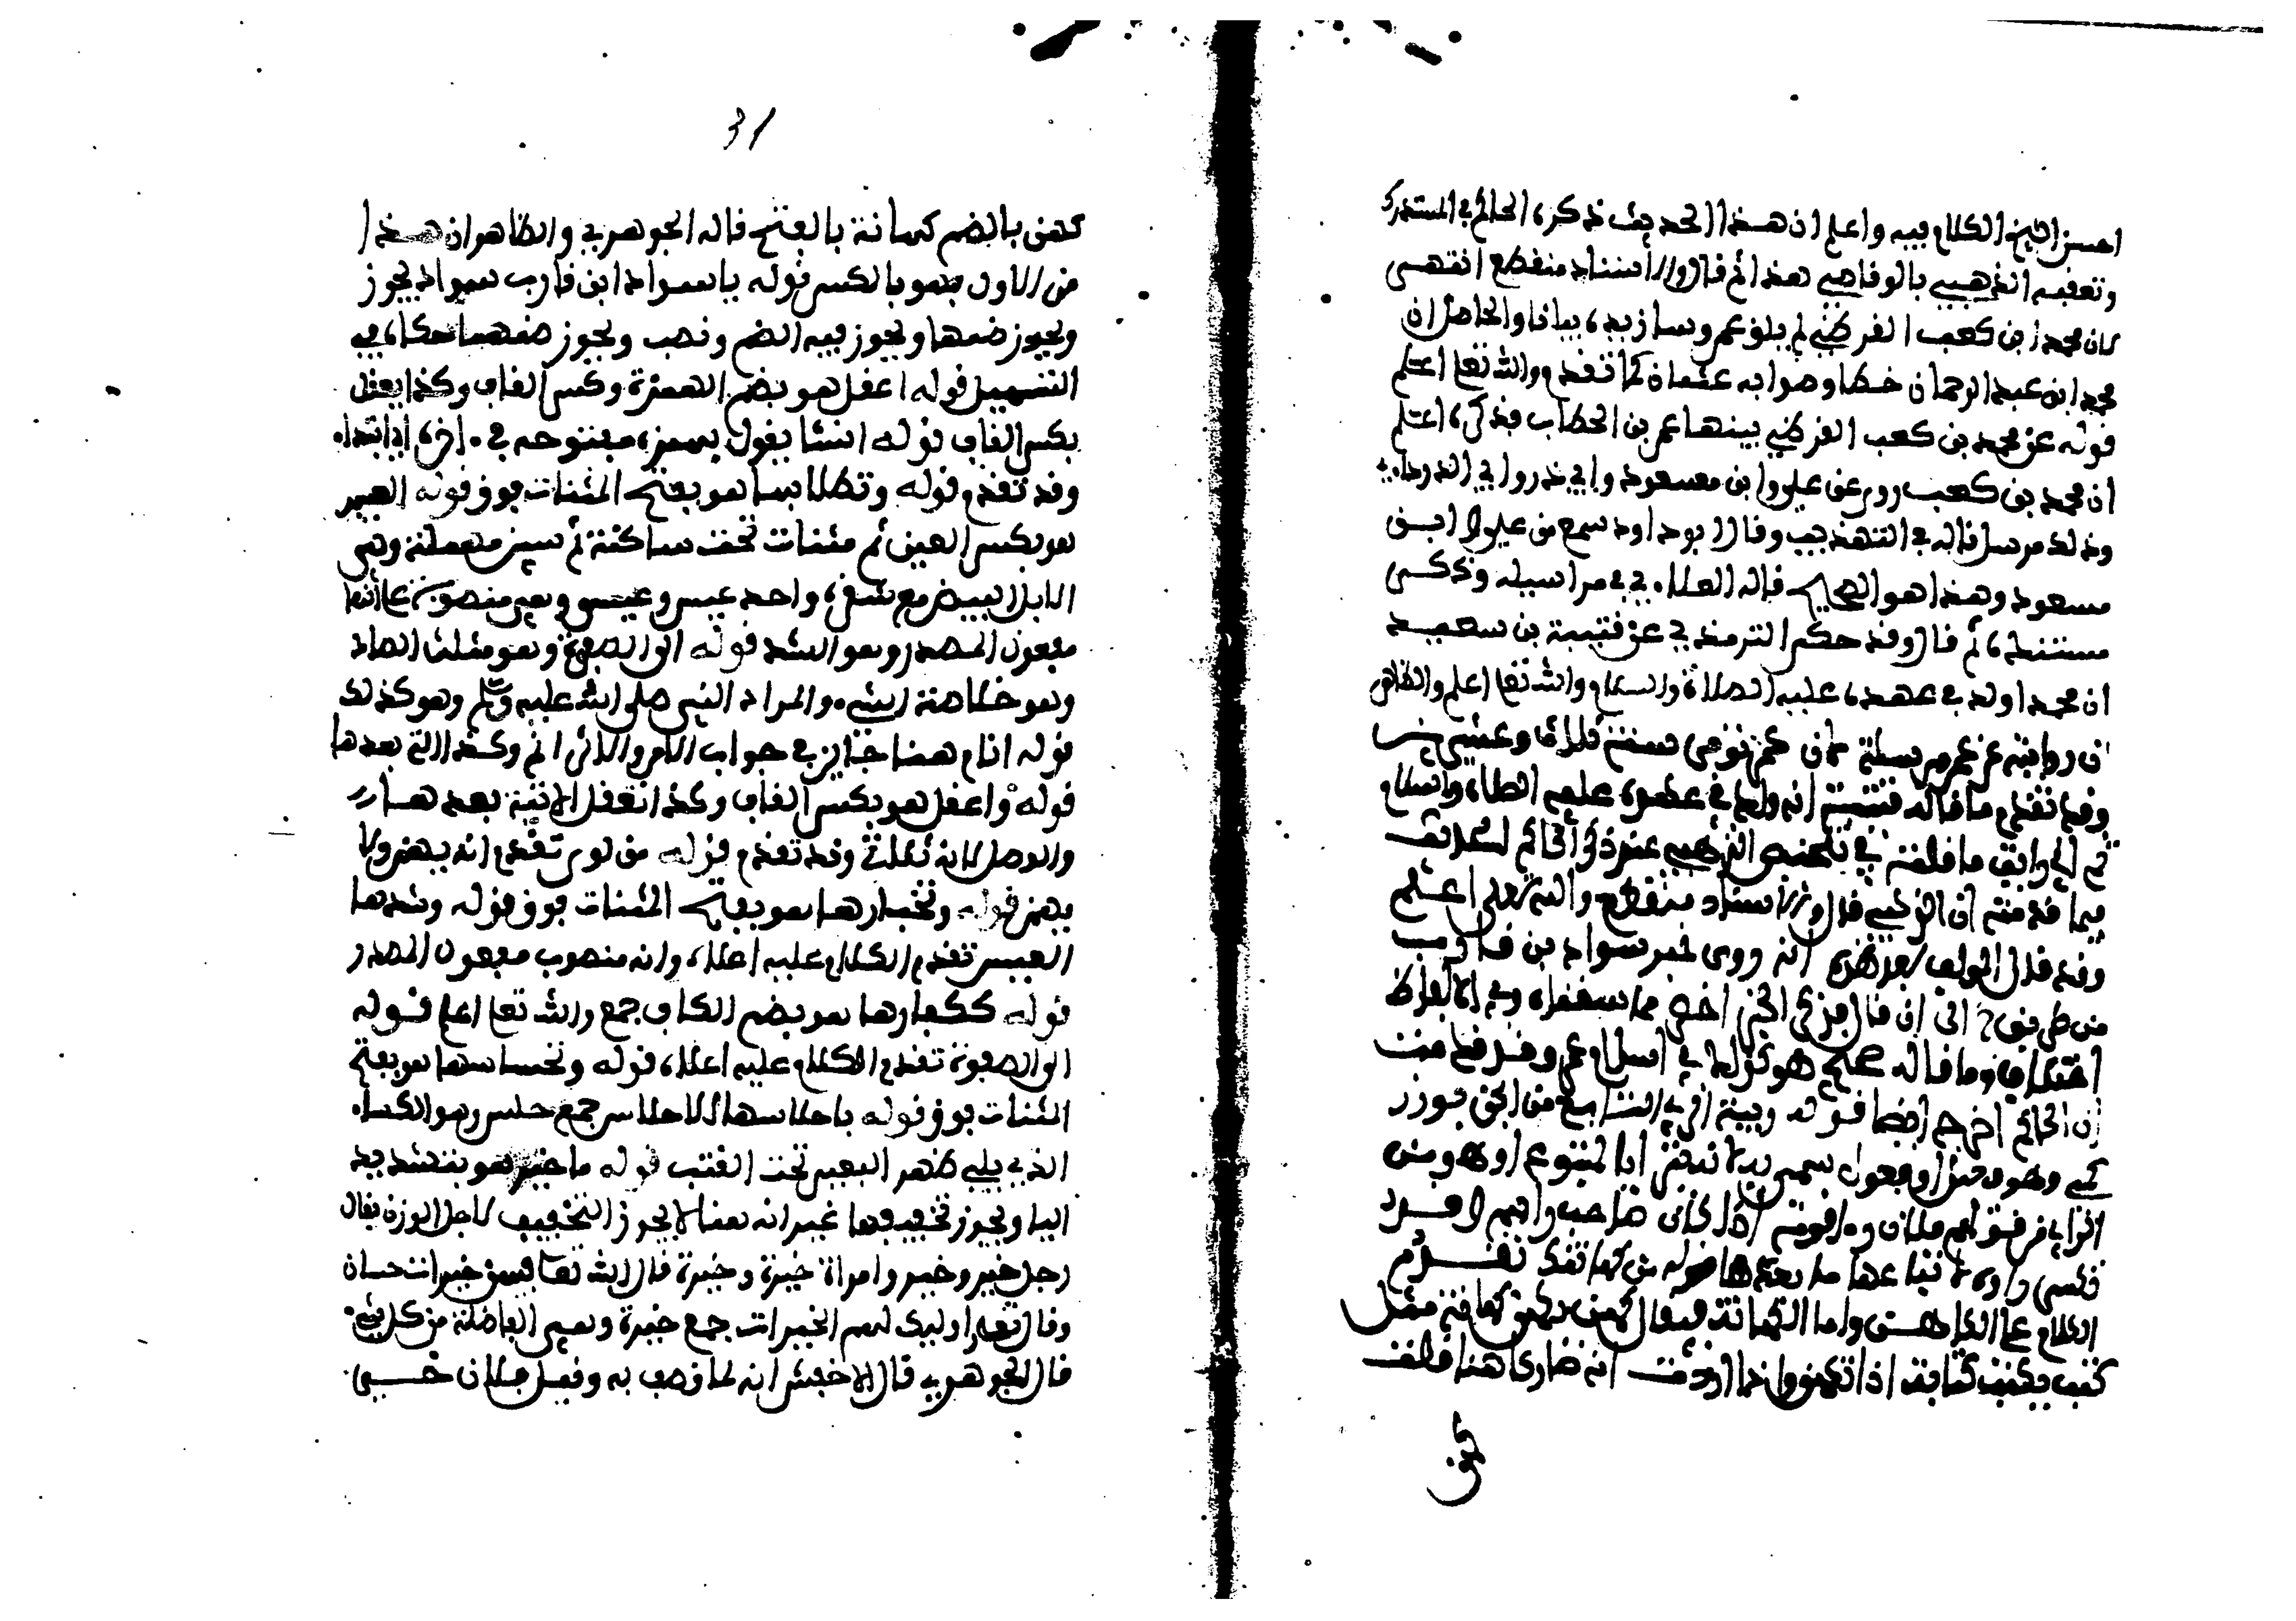 احسن الشيخ الكلام فيه واعلم ان هذا الحديث ذكره الحاكم في المستدرك
وتعقبه الذهبي بالوقاصي هذا ثم قال والاسناد منقطع انتهى
لان محمد ابن كعب القرظي لم يبلغ عمر وسازيده بيانا والحاصل ان
محمد ابن عبد الرحمان خطا وصوابه عثمان كما تقدم والله تعا اعلم
قوله عن محمد بن كعب القرظي بينها عمر بن الخطاب فذكره اعلم
ان محمد بن كعب روى عن علي وابن مسعود وابي ذر وابي الدرداء
وذلك مرسل قاله في التهذيب وقال ابو داود سمع من علي وابن
مسعود وهذا هو الصحيح قاله العلاءي في مراسيله وذكر
مستنده ثم قال وقد حكى الترمذي عن قتيبة بن سعيد
ان محمدا ولد في عهده عليه الصلاة والسلام والله تعا اعلم والظاهر
ان روايته عن عمر مرسلة لان عمر توفى سنة ثلاث وعشرين
وقد تقدم ما قاله قتيبة انه ولد في عهده عليه الصلاة والسلام
ثم اني رايت ما قلته في تلخيص الذهبي عند ذكر الحاكم الحديث
فيما قدمته ان الذهبي قال والاسناد منقطع والله تعلى اعلم
وقد قال المولف بعد هذا انه روى خبر سواد بن قارب
من طريق اخرى ان قال وذكر الخبر اخصر مما سقناه وفي الالفاظ
اختلاف وما قاله صحيح هو كذلك في اسلام عمر وقد قدمت
ان الحاكم اخرجه ايضا قوله رييه الري التابع من الجن بوزن
كمي وهو فعيل او فعول سمي به لانه يتراى لمتبوعه او هو من
الراي من قولهم فلان راي قومه اذا كان صاحب رايهم وقد
تكسر راوه لاتباعها ما بعدها قوله من كهانتك تقدم
الكلام على الكاهن واما الكهانة فيقال كهن يكهن كهانة مثل
كتب يكتب كتابة اذا تكهن واذا اردت انه صار كاهنا قلت
كهن
31
كهن بالضم كهانة بالفتح قاله الجوهري والظاهر ان هذا
من الاول فهو بالكسر قوله يا سواد ابن قارب سواد يجوز
ويجوز ضمها ويجوز فيه الضم ونصب ويجوز ضمهما حكاه في
التسهيل قوله اعقل هو بضم الهمزة وكسر القاف وكذا يعقل
بكسر القاف قوله انشا يقول بهمزة مفتوحة في ءاخره اي ابتدا
وقد تقدم قوله وتطلابها هو بفتح المثنات فوق قوله العيس
هو بكسر العين ثم مثنات تحت ساكنة ثم سين مهملة وهي
الابل البيض مع شقرة واحد عيس وعيس وهي منصوبة على انها
مفعول المصدر وهو الشد قوله الى الصفوة وهو مثلث الصاد
وهو خلاصة الشيء والمراد النبي صلى الله عليه وسلم وهو كذلك
قوله انام هنا جايز في جواب الامر والاثم انم وكذا التي بعدها
قوله واعقل هو بكسر القاف وكذا تعقل الاتية بعد هذا
والوصل لانه ثلاثي وقد تقدم قوله من لوي تقدم انه يهمز ولا
يهمز قوله وتخبارها هو بفتح المثنات فوق قوله وشدها
العيس تقدم الكلام عليه اعلاه وانه منصوب مفعول المصدر
قوله ككفارها هو بضم الكاف جمع والله تعا اعلم قوله
الى الصفوة تقدم الكلام عليه اعلاه قوله وتحساسها هو بفتح
المثنات فوق قوله باحلاسها الاحلاس جمع حلس وهو الكساء
الذي يلي ظهر البعير تحت القتب قوله ما خير هو بتشديد
اليا ويجوز تخفيفها غير انه هنا لا يجوز التخفيف لاجل الوزن يقال
رجل خير وخير وامراة خيرة وخيرة قال الله تعا فيهن خيرات حسان
وقال تعا اوليك لهم الخيرات جمع خيرة وهي الفاضلة من كل شيء
قال الجوهري قال الاخفش انه لما وصف به وقيل فلان خير